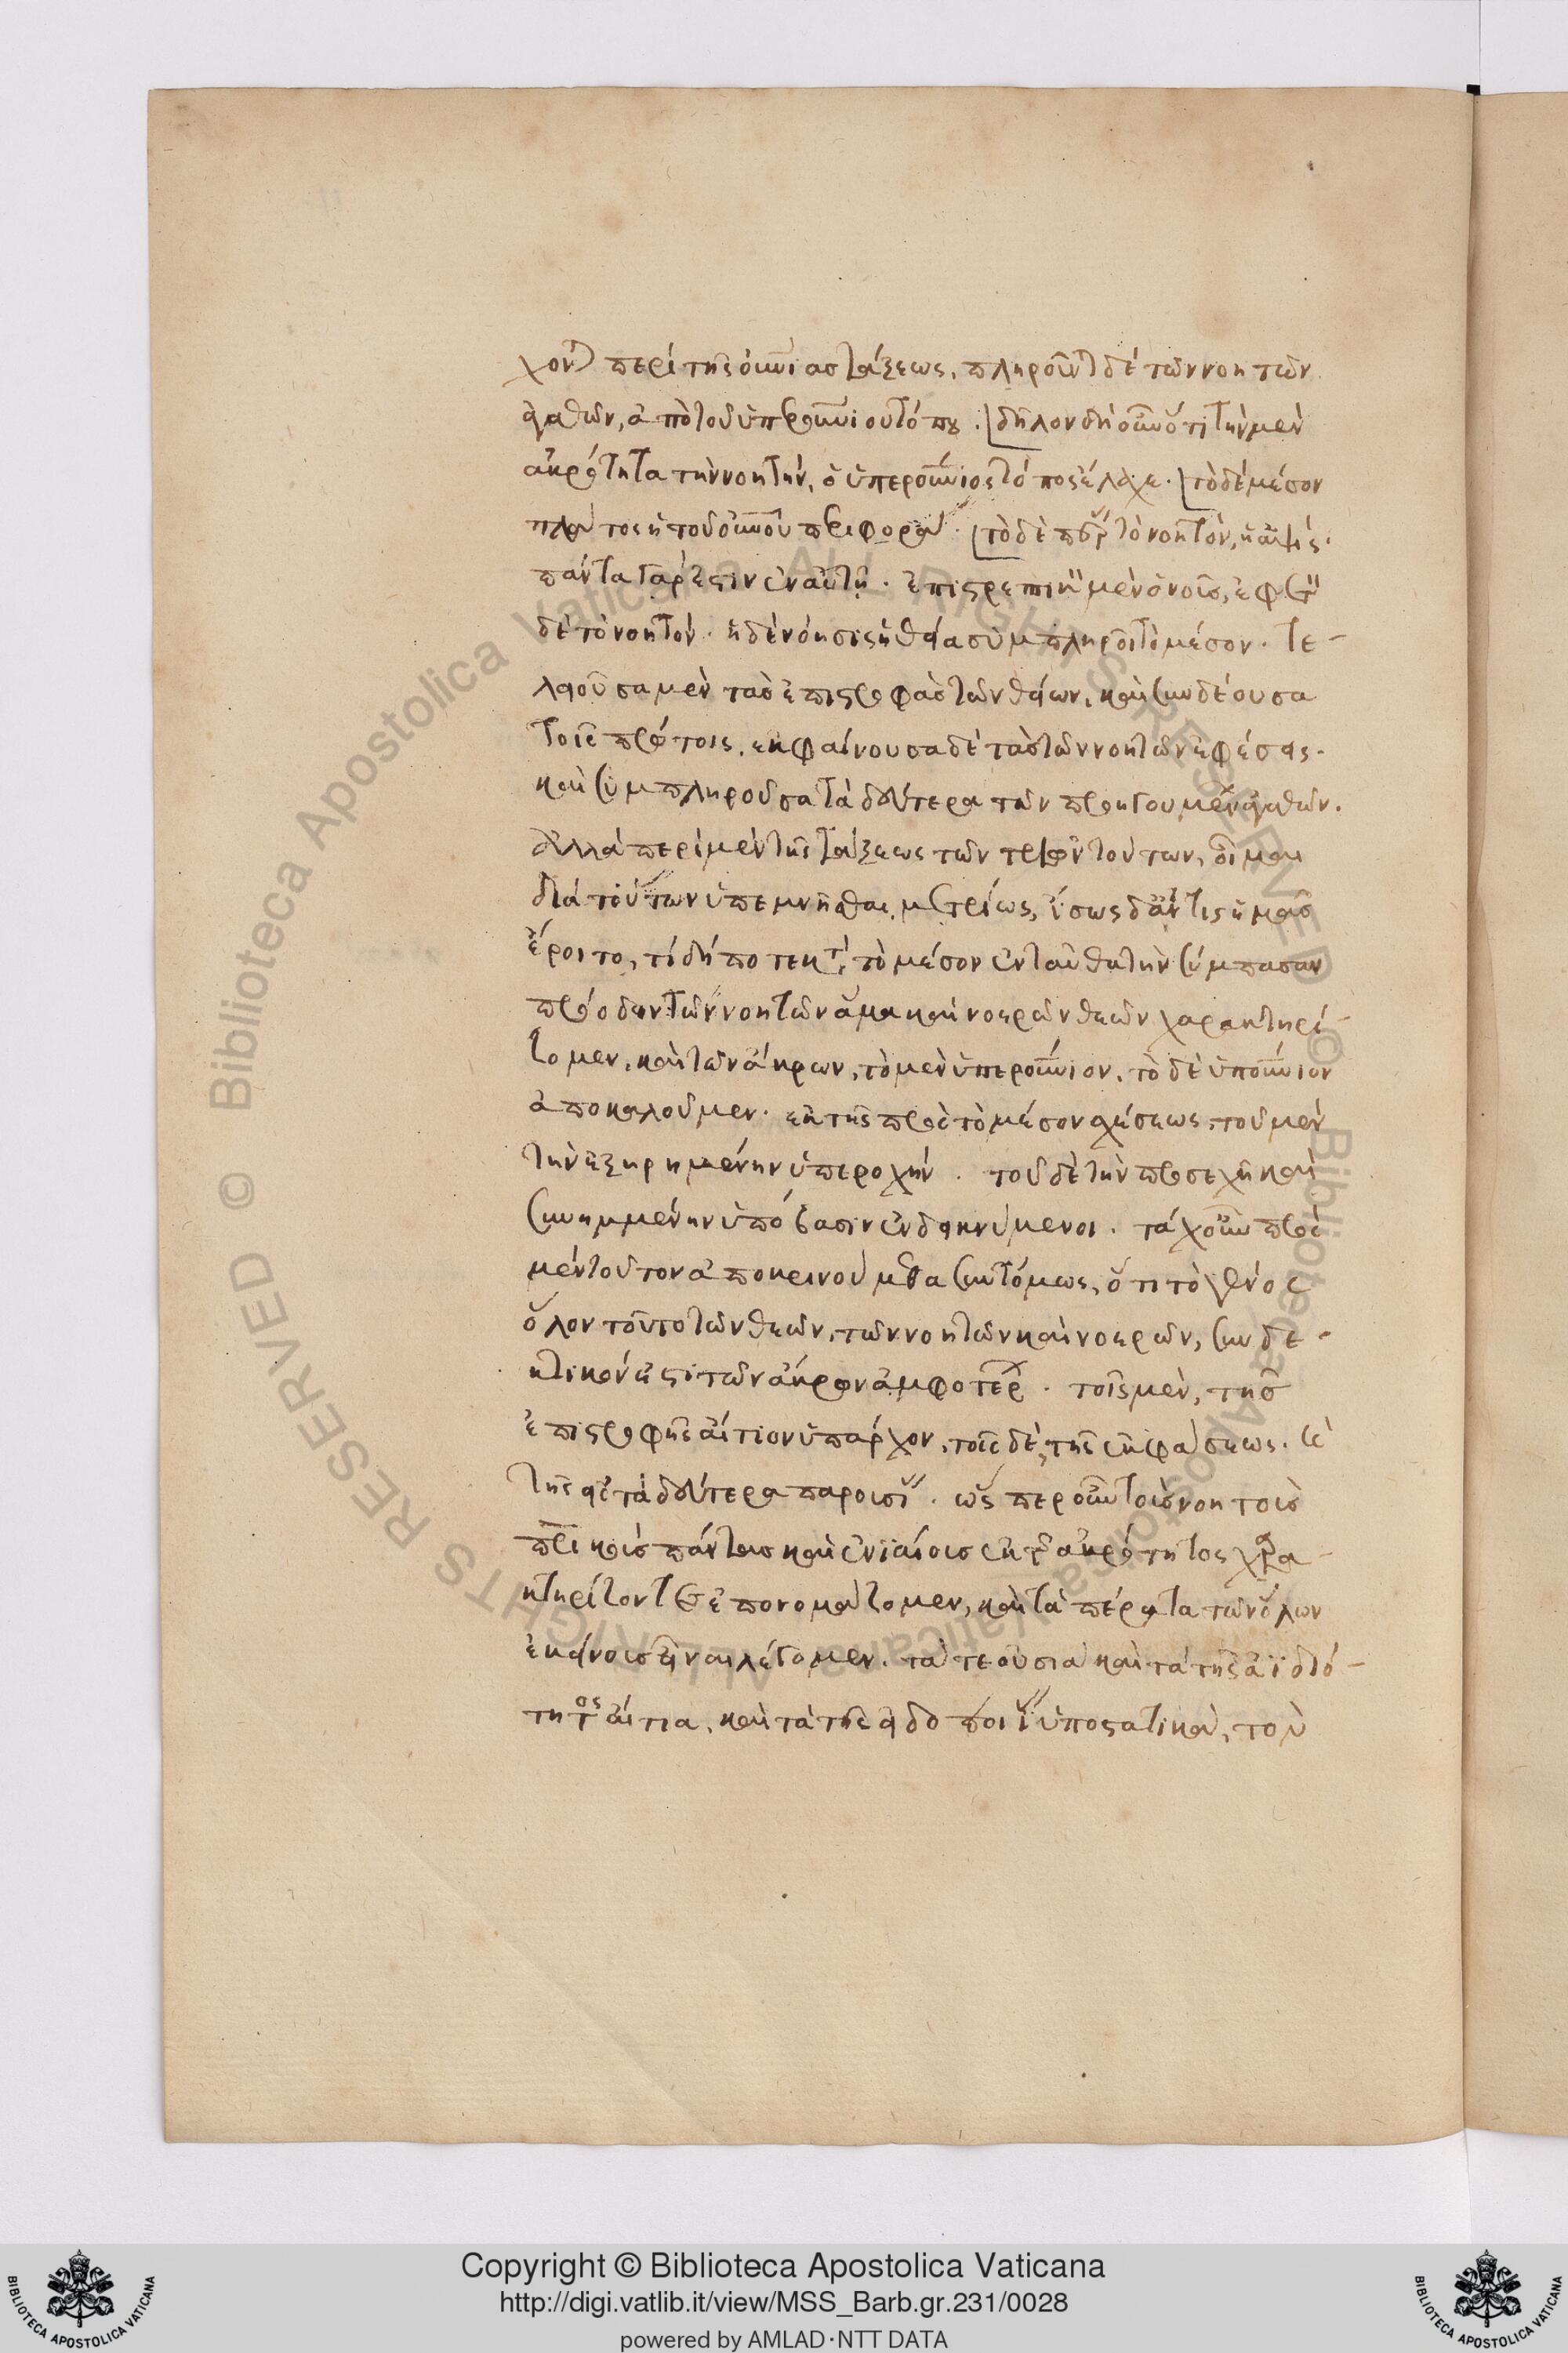 χονται περὶ τῆς οὐνίας τάξεως. πληροῦνται δὲ τῶν νοητῶν
ἀγαθῶν, ἀπὸ τοῦ ὑπερουνίου τόπου. δῆλον δὴ οὖν ὅτι τὴν μὲν
ἀκρότητα τὴν νοητὴν, ὁ ὑπερουνιος τόπος ἔλαχε. τὸ δὲ μέσον
πλάτος ἡ τοῦ οὐνοῦ περιφορά. τὸ δὲ πέρας τὸ νοητὸν, ἡ ἁψίς.
πάντα γάρ ἐστιν ἐν αὐτῇ. ἐπιστρεπτικὴ μὲν ὁ νοῦς, ἐφετὸν
δὲ τὸ νοητόν. ἡ δὲ νόησις ἡ θεία συμπληροῖ τὸ μέσον. τε-
λειοῦσα μὲν τὰς ἐπιστροφὰς τῶν θείων, καὶ συνδέουσα
τοῖς πρώτοις. ἐκφαίνουσα δὲ τὰς τῶν νοητῶν ἐφέσεις.
καὶ συμπληροῦσα τὰ δεύτερα τῶν προηγουμένων ἀγαθῶν.
ἀλλὰ περὶ μὲν τῆς τάξεως τῶν τριῶν τούτων, οἶμαι
διὰ τούτων ὑπεμνῆσθαι μετρίως, ἴσως δ' ἄν τις ἡμᾶς
ἔροιτο, τί δήποτε κατὰ τὸ μέσον ἐνταῦθα τὴν σύμπασαν
πρόοδον τῶν νοητῶν ἅμα καὶ νοερῶν θεῶν χαρακτηρί-
ζομεν, καὶ τῶν ἄκρων, τὸ μὲν ὑπερουνιον, τὸ δὲ ὑπουνιον
ἀποκαλοῦμεν. ἐκ τῆς πρὸς τὸ μέσον σχέσεως, τοῦ μὲν
τὴν ἐξηρημένην ὑπεροχήν. τοῦ δὲ τὴν προσεχῆ καὶ
συνημμένην ὑπόβασιν ἐνδεικνύμενοι. τάχ' οὖν πρὸς
μὲν τοῦτον ἀποκρινούμεθα συντόμως, ὅτι τὸ γένος
ὅλον τοῦτο τῶν θεῶν, τῶν νοητῶν καὶ νοερῶν, συνδε-
κτικόν ἐστι τῶν ἄκρων ἀμφοτέρων. τοῖς μὲν, τῆς
ἐπιστροφῆς αἴτιον ὑπάρχον, τοῖς δὲ, τῆς ἐκφάσεως. καὶ
τῆς εἰς τὰ δεύτερα παρουσίας. ὥσπερ οὖν τοὺς νοητοὺς
πατρικοὺς πάντας καὶ ἑνιαίους ἐκ τῆς ἀκρότητος χαρα-
κτηρίζοντες ἐπονομάζομεν, καὶ τὰ πέρατα τῶν ὅλων
ἐκείνους εἶναι λέγομεν. τά τε οὐσίας καὶ τὰ τῆς ἀϊδιό-
τητος αἴτια, καὶ τὰ τῆς εἰδοποιίας ὑποστατικὰ, τοὺ
Copyright © Biblioteca Apostolica Vaticana
http://digi.vatlib.it/view/MSS_Barb.gr.231/0028
powered by AMLAD·NTT DATA